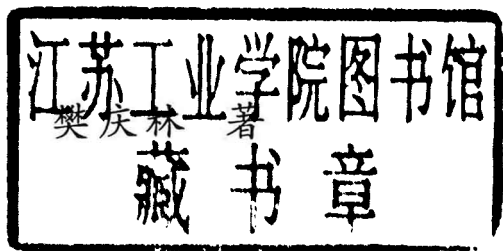 江苏工业学院图书馆
樊庆林 著
藏书章